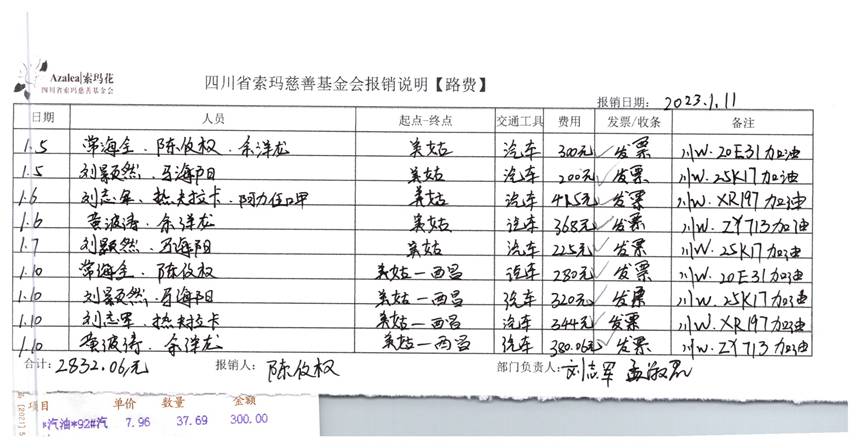 Azalea|索玛花
四川省索玛慈善基金会
四川省索玛慈善基金会报销说明【路费】
报销日期: 2023.1.11
日期 人员 起点-终点 交通工具 费用 发票/收条 备注
1.5 常海全、陈俊权、余洋龙 美姑 汽车 300元 发票 川W·20E31加油
1.5 刘景颐然、马海阳日 美姑 汽车 200元 发票 川W·25K17加油
1.6 刘志军、热夫拉卡、阿力伍呷 美姑 汽车 415元 发票 川W·XR197加油
1.6 黄波涛、余洋龙 美姑 汽车 368元 发票 川W·ZY713加油
1.7 马海阳 美姑 汽车 225元 发票 川W·25K17加油
1.10 常海全、陈俊权 美姑—西昌 汽车 280元 发票 川W·20E31加油
1.10 马海阳 美姑—西昌 汽车 320元 发票 川W·25K17加油
1.10 刘志军、热夫拉卡 美姑—西昌 汽车 344元 发票 川W·XR197加油
1.10 黄波涛、余洋龙 美姑—西昌 汽车 380.06元 发票 川W·ZY713加油
合计: 2832.06元 报销人: 陈俊权 部门负责人: 刘志军
项目 单价 数量 金额
*汽油*92#汽 7.96 37.69 300.00